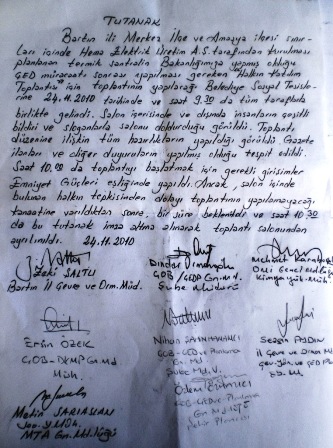 TUTANAK
Bartın ili Merkez İlçe ve Amasra ilçesi sınır-
ları içinde Hema Elektrik Üretim A.Ş. tarafından kurulması
planlanan termik santralin Bakanlığımıza yapmış olduğu
ÇED müracaatı sonrası yapılması gereken "Halkın Katılım
Toplantısı" için toplantının yapılacağı Belediye Sosyal Tesis-
lerine 24.11.2010 tarihinde ve saat 9.30 da tüm taraflarla
birlikte gelindi. Salon içerisinde ve dışında insanların çeşitli
bildiri ve sloganlarla salonu doldurduğu görüldü. Toplantı
düzenine ilişkin tüm hazırlıkların yapıldığı görüldü Gazete
ilanları ve diğer duyuruların yapılmış olduğu tespit edildi.
Saat 10.00 da toplantıyı başlatmak için gerekli girişimler
Emniyet Güçleri eşliğinde yapıldı. Ancak, salon içinde
bulunan halkın tepkisinden dolayı toplantının yapılamayacağı
kanaatine varıldıktan sonra, bir süre beklenildi ve saat 10.30
da bu tutanak imza altına alınarak toplantı salonundan
ayrılınıldı. 24.11.2010
Zeki SALTLI
Bartın İl Çevre ve Orm. Müd.
Dinçer
ÇOB ÇED Gn. Md.
Şube Müdürü
Mehmet
Kimya Yük. Müh.
Ersin ÖZEK
ÇOB-DKMP Gn. Md.
Müh.
Nihan
ÇOB-ÇED ve Planlama
Gn. Md.
Şube Md. V.
Sezgin AYDIN
İl Çevre ve Orman Md
Metin SARIASLAN
MTA Gn. Md. lüğü
Özlem
ÇOB-ÇED ve Planlama
Gn. Md. lüğü
Şehir Plancısı